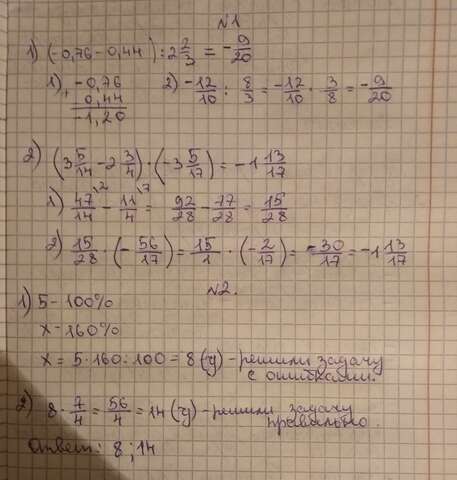 №1
1) (-0,76-0,44):2 2/3 = -9/20
1) -0,76
0,44
-1,20
2) -12/10 : 8/3 = -12/10 · 3/8 = -9/20
2) (3 5/14 - 2 3/4)·(-3 5/17) = -1 13/17
1) 47/14 \2 - 11/4 \7 = 92/28 - 77/28 = 15/28
2) 15/28 · (-56/17) = 15/1 · (-2/17) = -30/17 = -1 13/17
№2.
1) 5 - 100%
x - 160%
x = 5·160:100 = 8 (у) - решили задачу
с ошибками.
2) 8 · 7/4 = 56/4 = 14 (у) - решили задачу
правильно.
Ответ: 8 ; 14